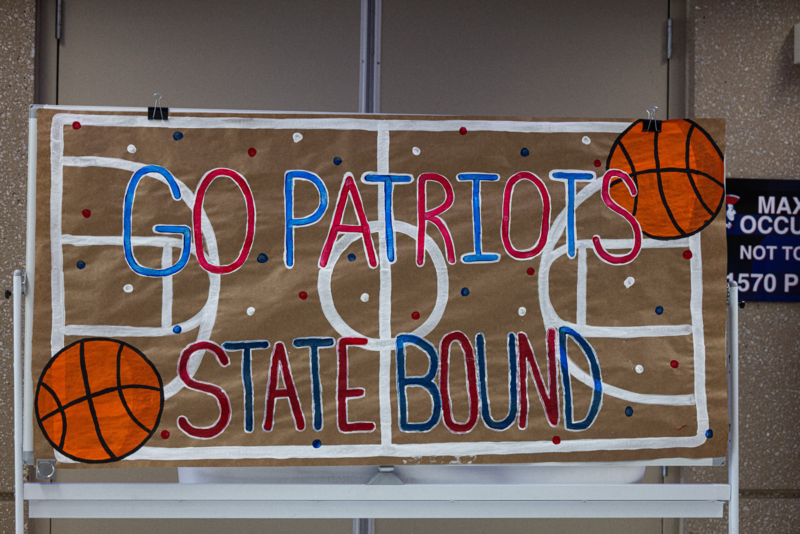 GO PATRIOTS
STATE BOUND
MAX
OCCU
NOT TO
1570 P